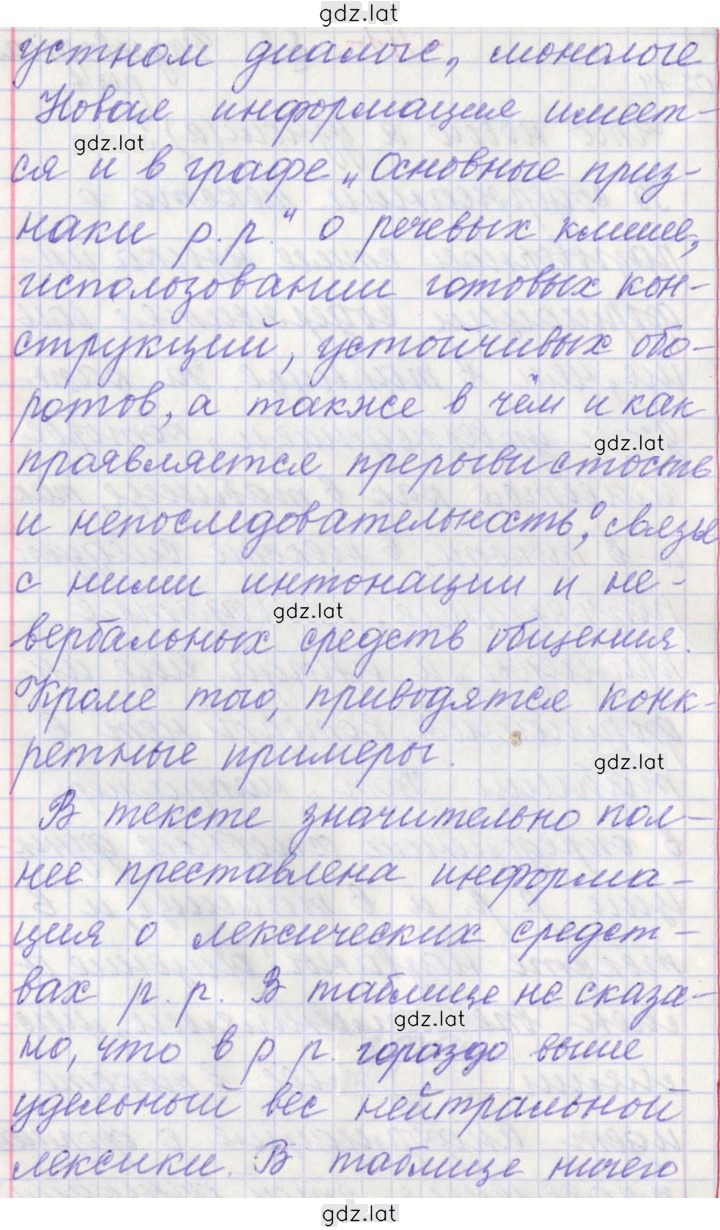 gdz.lat
устном диалоге, монологе
Новая информация имеет-
gdz.lat
ся и в графе „Основные приз-
наки р.р." о речевых клише,
использовании готовых кон-
струкций, устойчивых обо-
ротов, а также в чём и как
gdz.lat
проявляется прерывистость
и непоследовательность, о связи
с ними интонации и не-
gdz.lat
вербальных средств общения.
Кроме того, приводятся конк-
ретные примеры.
gdz.lat
В тексте значительно пол-
нее преставлена информа-
ция о лексических средст-
вах р.р. В таблице не сказа-
gdz.lat
но, что в р р. гораздо выше
удельный вес нейтральной
лексики. В таблице ничего
gdz.lat